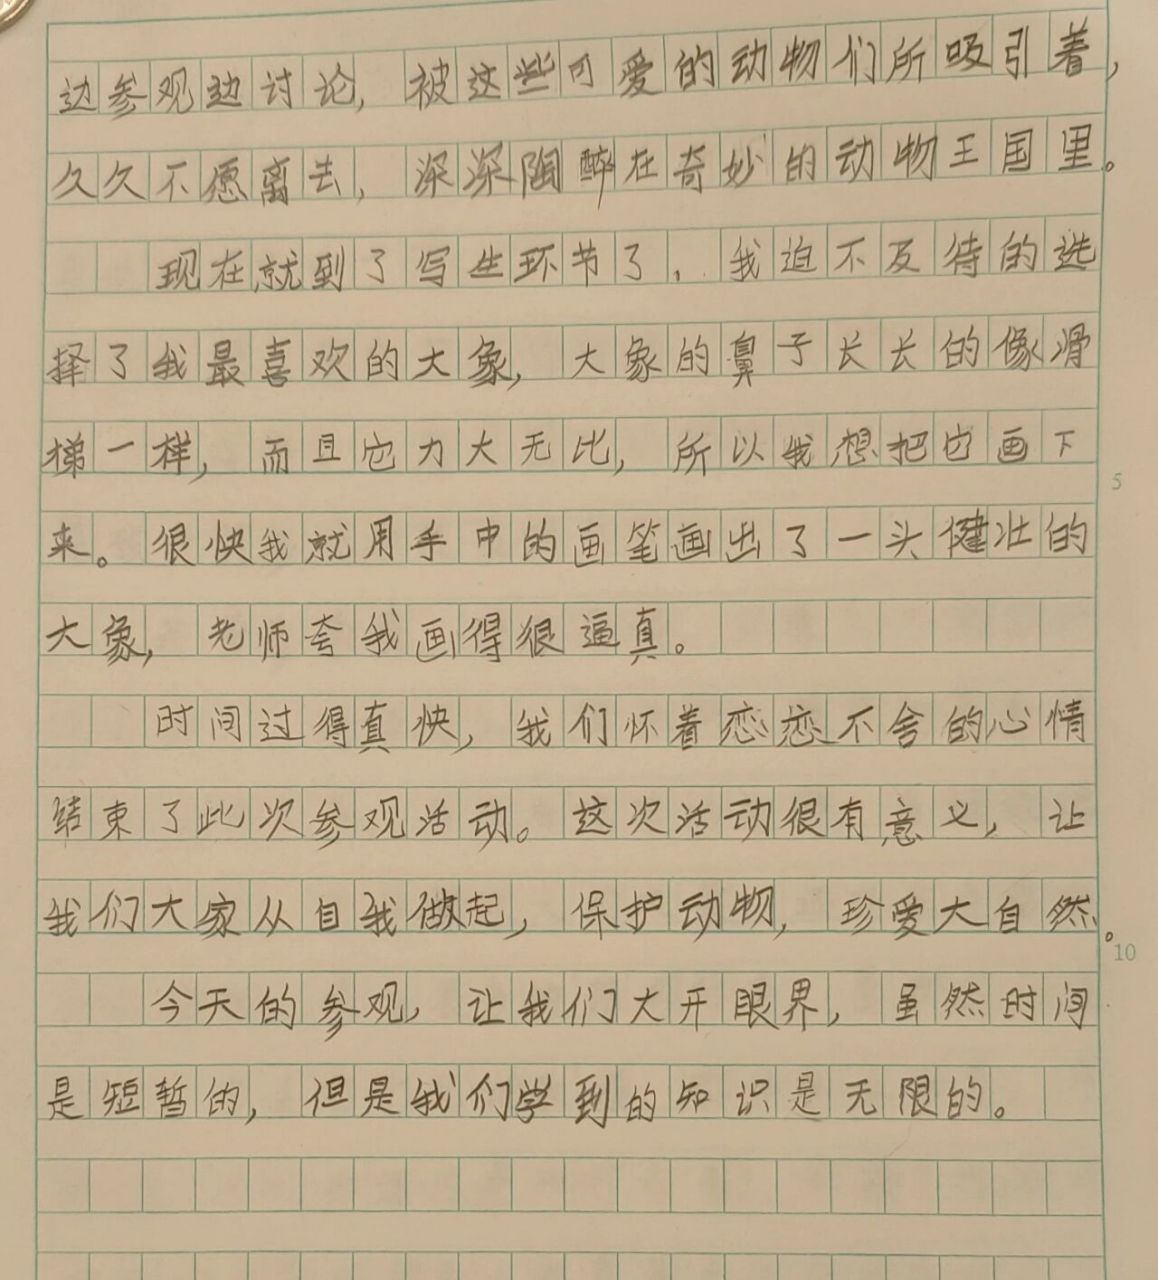 边参观边讨论，被这些可爱的动物们所吸引着，
久久不愿离去，深深陶醉在奇妙的动物王国里。
现在就到了写生环节了，我迫不及待的选
择了我最喜欢的大象，大象的鼻子长长的像滑
梯一样，而且它力大无比，所以我想把它画下
来。很快我就用手中的画笔画出了一头健壮的
大象，老师夸我画得很逼真。
时间过得真快，我们怀着恋恋不舍的心情
结束了此次参观活动。这次活动很有意义，让
我们大家从自我做起，保护动物，珍爱大自然。
今天的参观，让我们大开眼界，虽然时间
是短暂的，但是我们学到的知识是无限的。
5
10